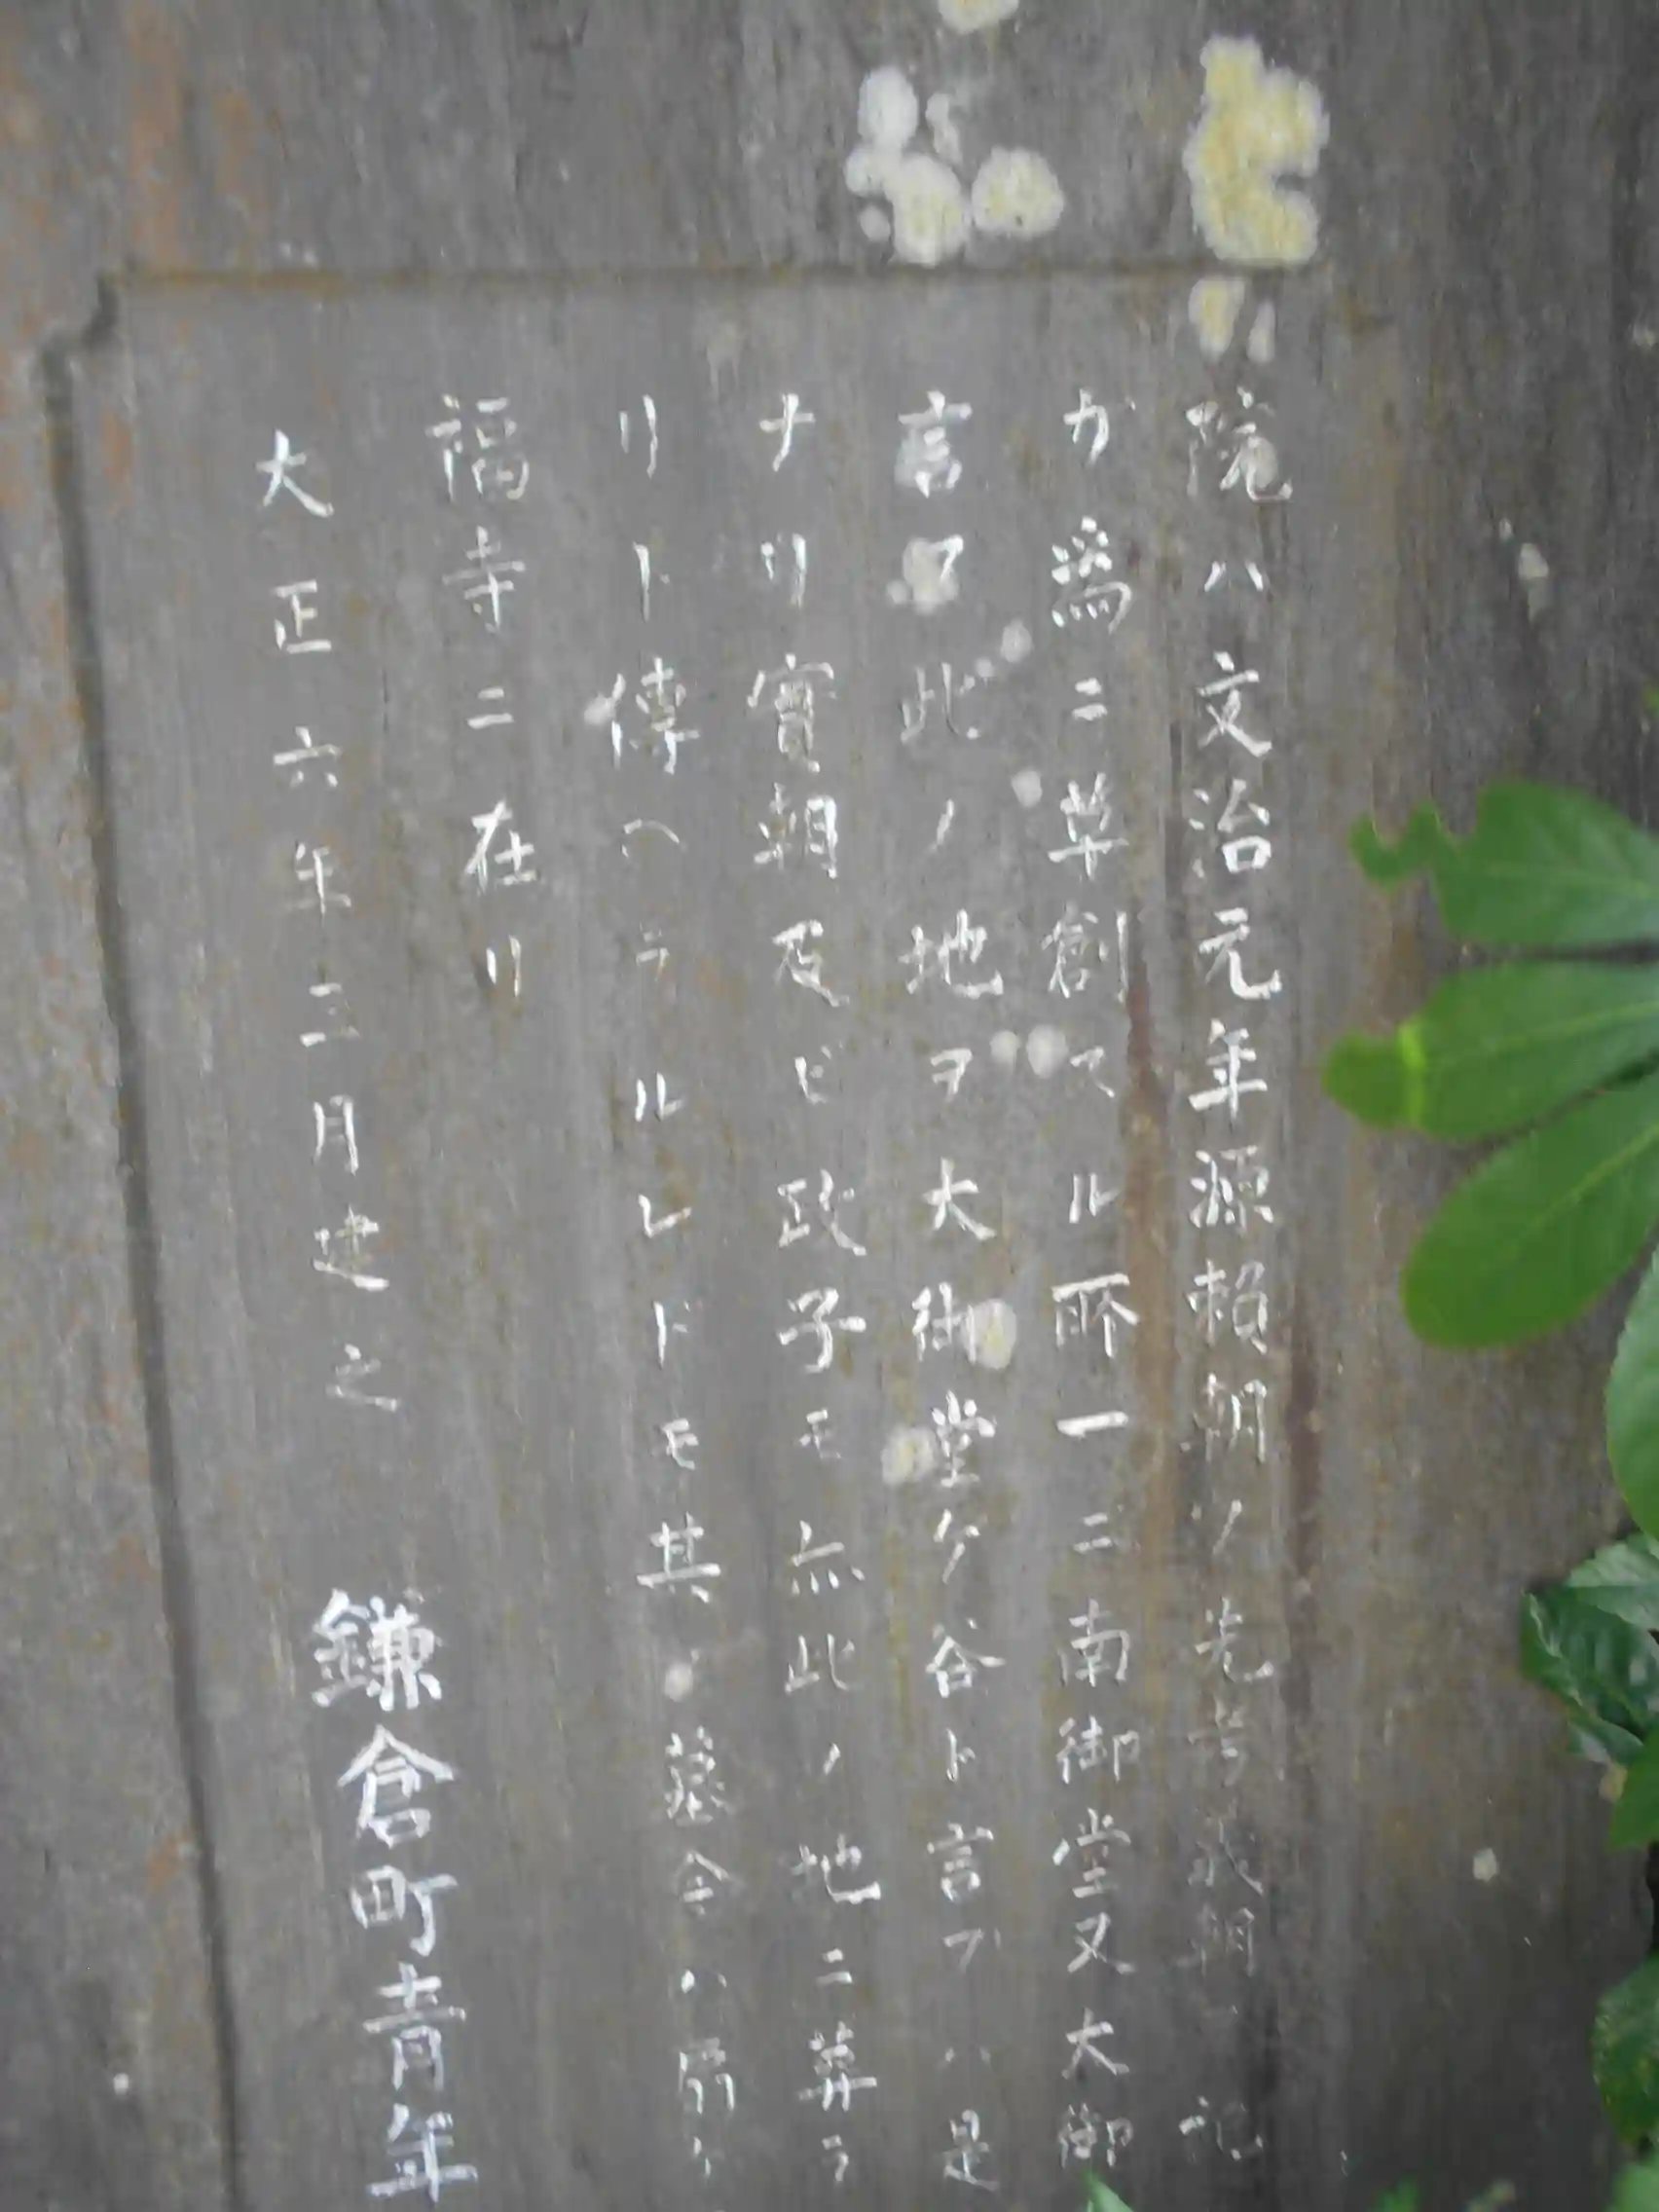 院ハ文治元年源頼朝ノ先考義朝ノ記
ガ為ニ草創スル所一ニ南御堂又大御
言フ此ノ地ヲ大御堂ケ谷ト言フハ是
ナリ實朝及ビ政子モ亦此ノ地ニ葬ラ
リト傳ヘラルルレドモ其ノ墓今ハ扇ケ
福寺ニ在リ
大正六年三月建之 鎌倉町青年